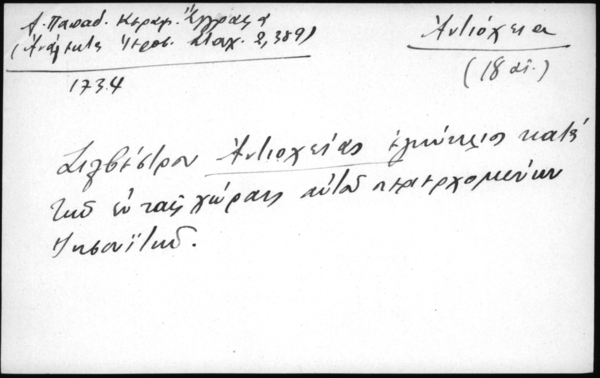 Α. Παπαδ. Κεραμ. Ἔγγραφα
(Ἀνάλεκτα Ἱεροσ. Σταχ. 2, 389)
Ἀντιόχεια
(18 αἰ.)
1734
Σιλβέστρου Ἀντιοχείας ἐγκύκλιος κατὰ
τῶν ἐν ταῖς χώραις αὐτοῦ περιερχομένων
Ἰησουϊτῶν.